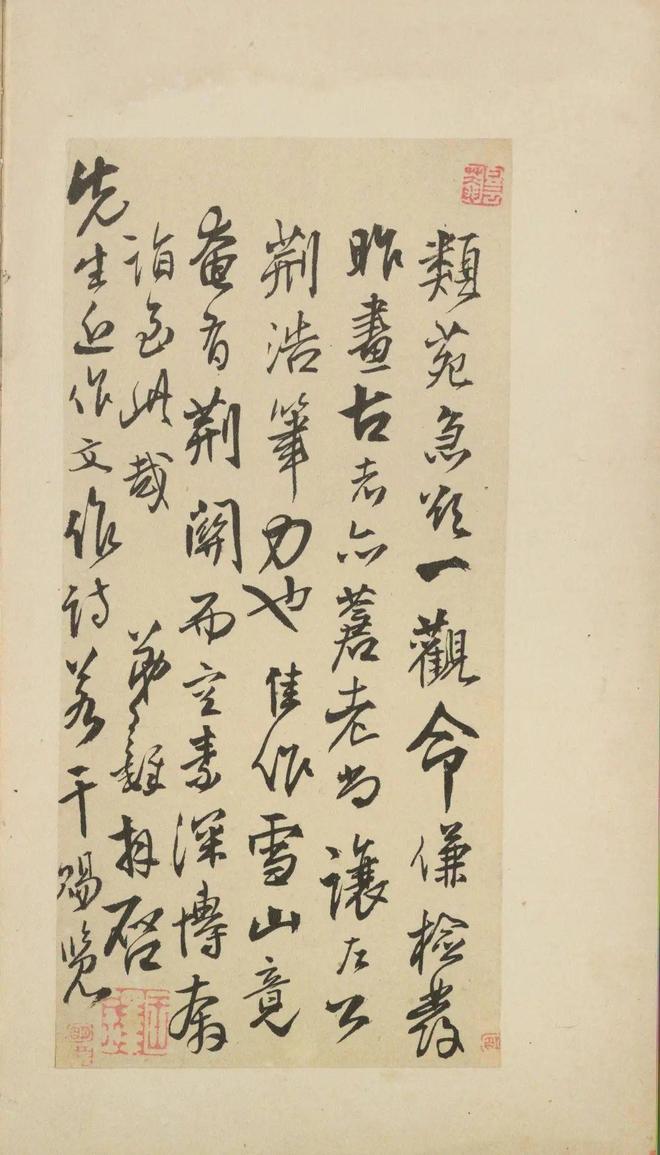 類苑急欲一觀命傔檢發
昨畫古老亦蒼老尚讓左公
荊浩筆力也佳作雪山竟
奄有荊關而空素深博奇
詣至此哉 弟拜啟
先生近作文作詩若干賜覽